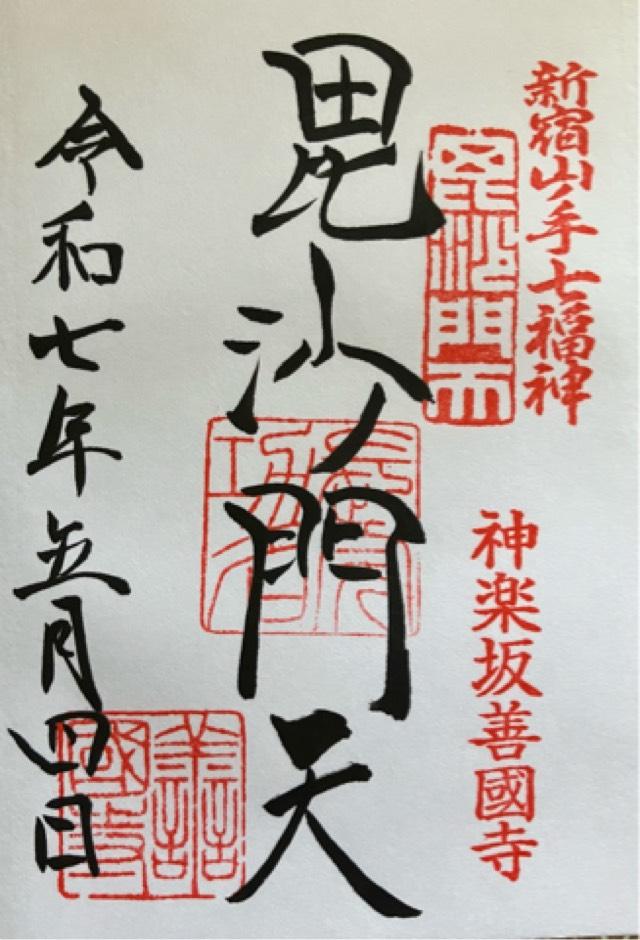 新宿山ノ手七福神
神楽坂善國寺
毘沙門天
令和七年五月四日
善國寺